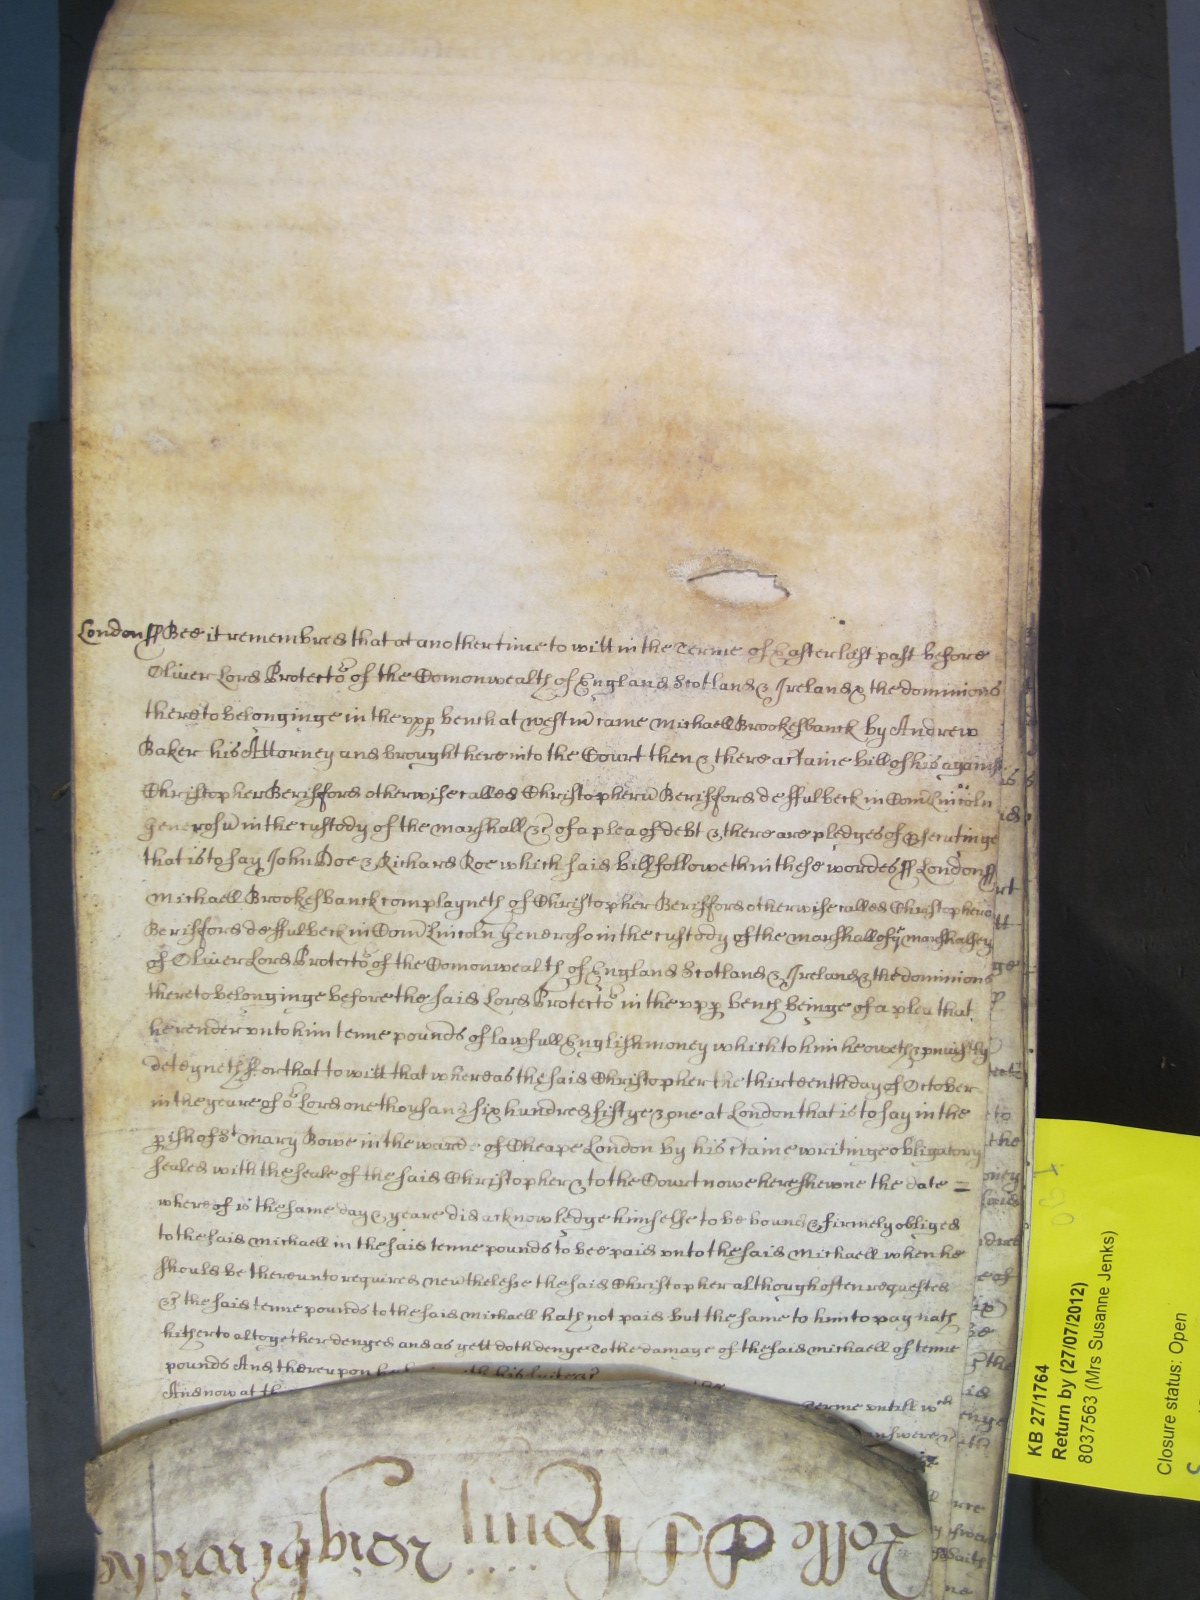 London ff Bee it remembred that at another time to witt in the Terme of Easter last past before
Oliver Lord Protector of the Comonwealth of England Scotland & Ireland & the dominions
thereto belonginge in the upp bench at westm came Michaell Brookesbanck by Andrew
Baker his Attorney and brought here into the Court then & there a certaine bill of his against
Christopher Berisford otherwise called Christopherū Berisford de ffulbeck in Com Lincoln
generosū in the custody of the marshall &c of a plea of debt & there are pledges of psecutinge
that is to say John Doe & Richard Roe which said bill followeth in these wordes ff London ff
Michaell Brookesbanck complayneth of Christopher Berisford otherwise called Christophero
Berisford de ffulbeck in Com Lincoln generoso in the custody of the marshall of ye marshalsey
of Oliver Lord Protector of the Comonwealth of England Scotland & Ireland & the dominions
thereto belonginge before the said Lord Protector in the upp bench beinge of a plea that
he render unto him tenne pounds of lawfull English money which to him he oweth & uniustly
deteyneth ffor that to witt that whereas the said Christopher the thirteenth day of October
in the yeare of or Lord one thousand six hundred fiftye & one at London that is to say in the
pish of St Mary Bowe in the warde of Cheape London by his ctaine writinge obligatory
sealed with the seale of the said Christopher & to the Court nowe here shewne the date =
whereof is the same day & yeare did acknowledge himselfe to be bound & firmely obliged
to the said Michaell in the said tenne pounds to bee paid unto the said Michaell when he
should be thereunto required nevthelesse the said Christopher although often requested
&c the said tenne pounds to the said Michaell hath not paid but the same to him to pay hath
hitherto altogether denyed and as yett doth denye To the damage of the said Michaell of tenne
pounds And thereupon he his suite &c
And now at th Terme untill wch
answere
Rolle
KB 27/1764
Return by (27/07/2012)
8037563 (Mrs Susanne Jenks)
Closure status: Open